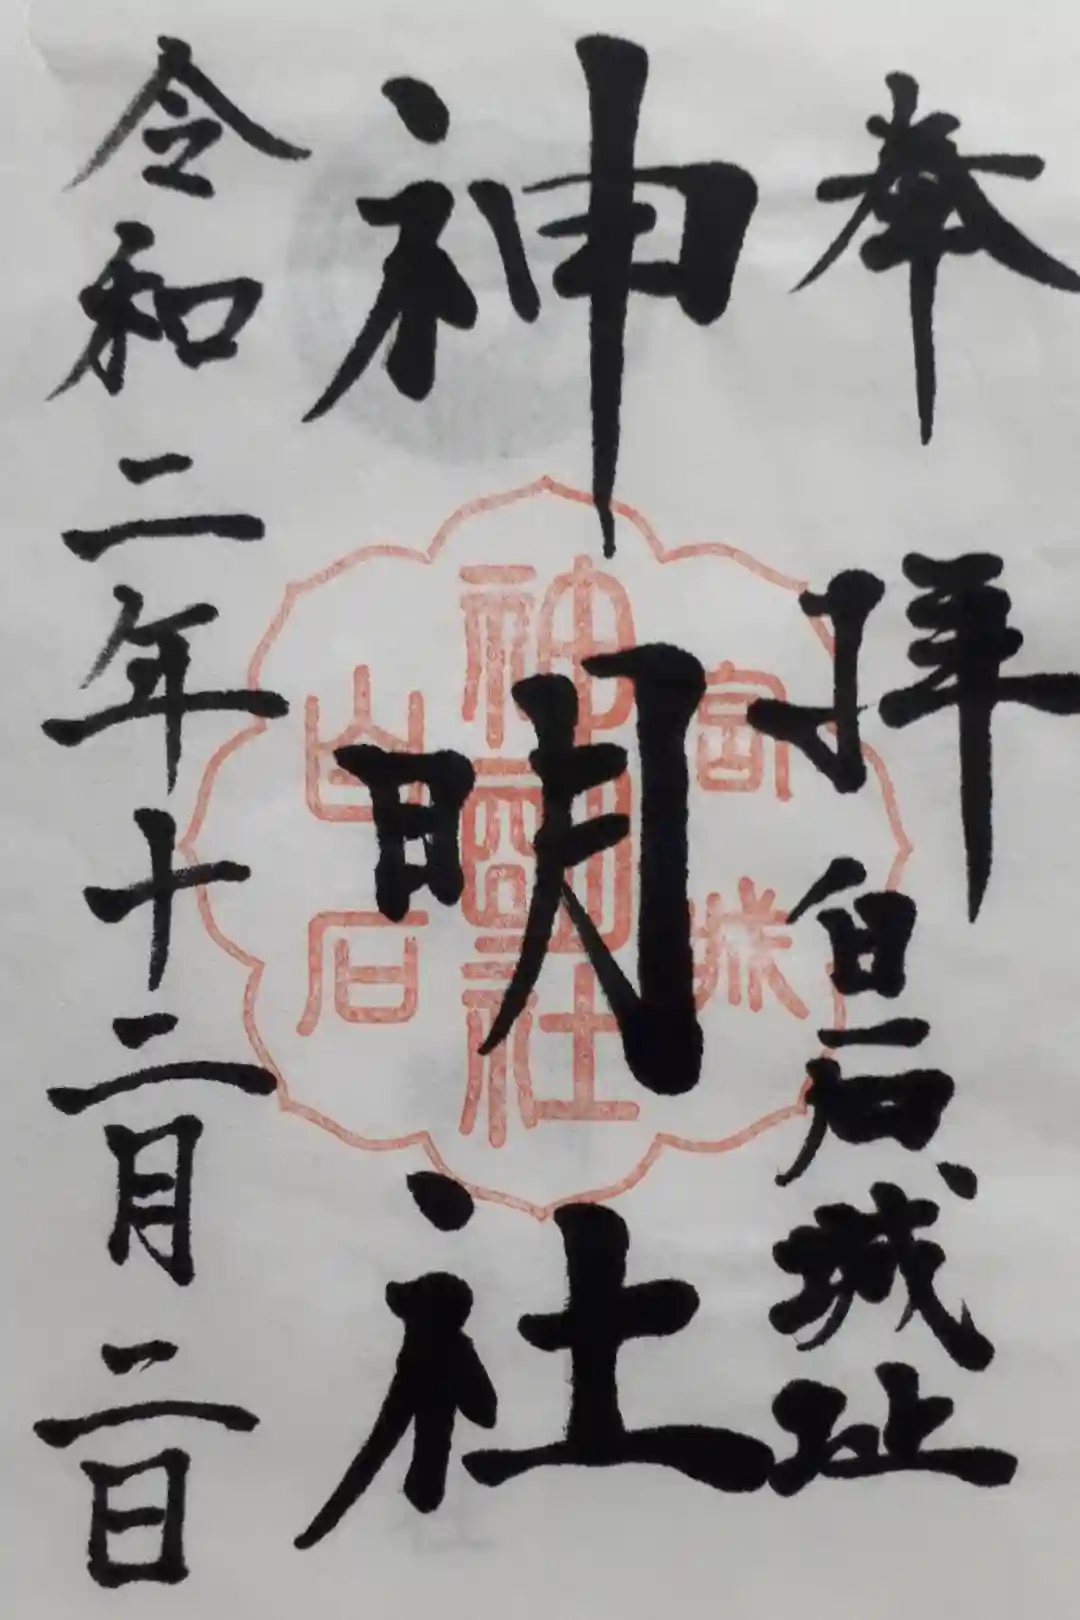 奉拝 白石城址
神明社
令和二年十二月二日
宮城
神明社
白石